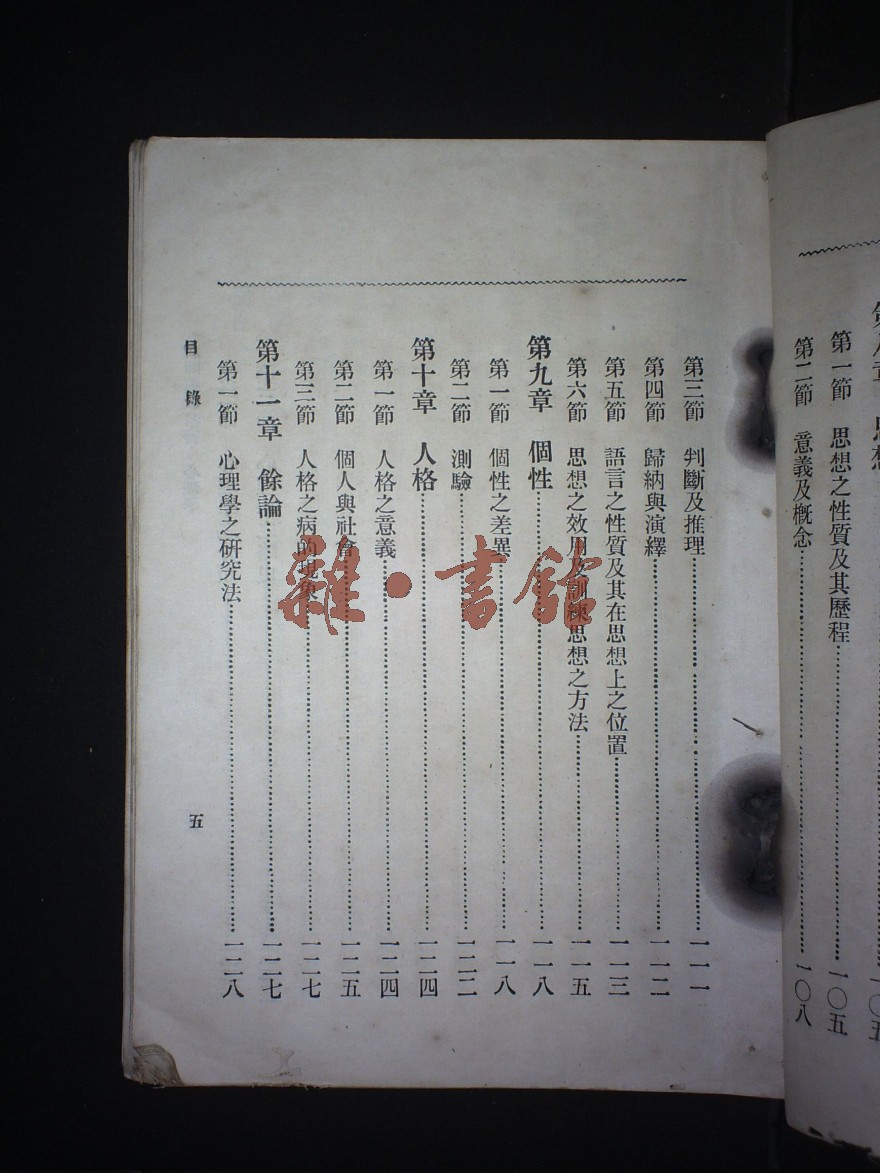 思想
一〇五
第一節 思想之性質及其歷程 一〇五
第二節 意義及概念 一〇八
第三節 判斷及推理 一一一
第四節 歸納與演繹 一一二
第五節 語言之性質及其在思想上之位置 一一三
第六節 思想之效用及訓練思想之方法 一一五
第九章 個性 一一八
第一節 個性之差異 一一八
第二節 測驗 一二二
第十章 人格 一二四
第一節 人格之意義 一二四
第二節 個人與社會 一二五
第三節 人格之病的現象 一二七
第十一章 餘論 一二七
第一節 心理學之研究法 一二八
目錄
五
雜·書館